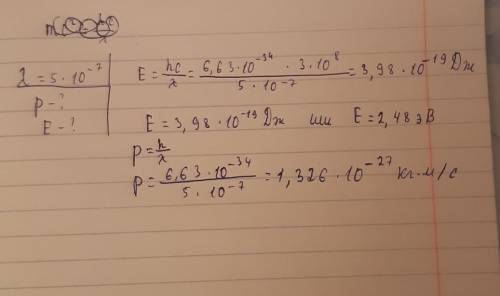 λ = 5 · 10⁻⁷
P - ?
E - ?
E = hc/λ = 6,63 · 10⁻³⁴ · 3 · 10⁸ / 5 · 10⁻⁷ = 3,98 · 10⁻¹⁹ Дж
E = 3,98 · 10⁻¹⁹ Дж или E = 2,48 эВ
p = h/λ
p = 6,63 · 10⁻³⁴ / 5 · 10⁻⁷ = 1,326 · 10⁻²⁷ кг·м/с